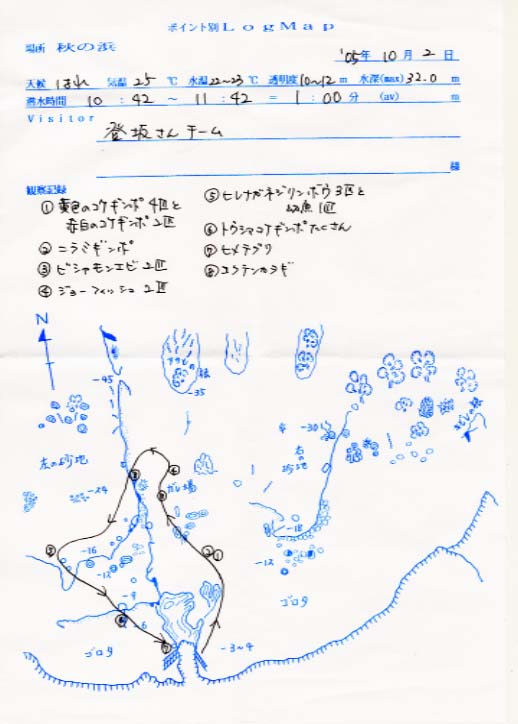 ポイント別 LogMap
場所 秋の浜 '05年 10月 2日
天候 はれ 気温 25 ℃ 水温 22~23 ℃ 透明度 10~12 m 水深(max) 32.0 m
潜水時間 10 : 42 ~ 11 : 42 = 1 : 00 分 (av) m
Visitor
登坂さんチーム
様
観察記録
① 黄色のコケギンポ 4匹と
赤白のコケギンポ 2匹
② ニラミギンポ
③ ビシャモンエビ 2匹
④ ジョーフィッシュ 2匹
⑤ ヒレナガネジリンボウ 3匹と
幼魚 1匹
⑥ トウシマコケギンポ たくさん
⑦ ヒメテグリ
⑧ コクテンカタギ
N
-45
-35
-30
左の砂地
-24
ガレ場
右の砂地
-18
-16
-12
-12
-9
-6
ゴロタ
ゴロタ
-3~4